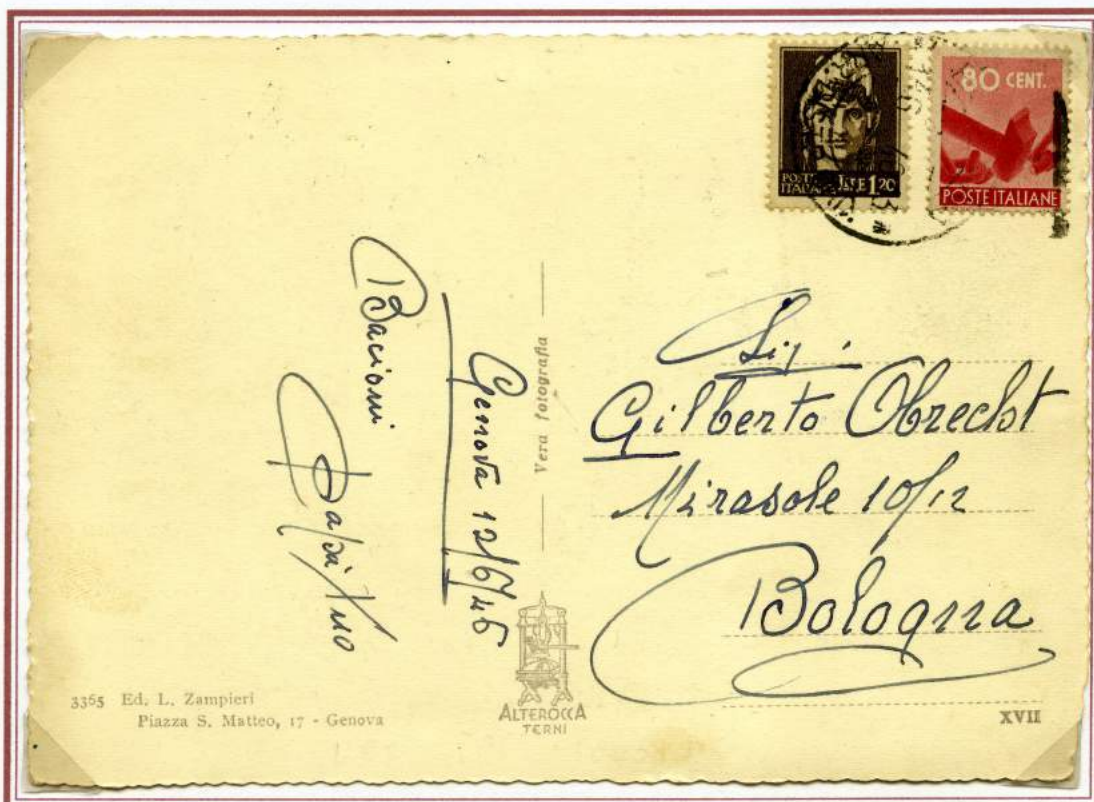 80 CENT.
POSTE ITALIANE
POSTE
ITALIANE
LIRE 1,20
Genova 12/6/46
Bacioni
Papà tuo
Vera fotografia
Sig.
Gilberto Obrecht
Mirasole 10/12
Bologna
3365 Ed. L. Zampieri
Piazza S. Matteo, 17 - Genova
ALTEROCCA
TERNI
XVII